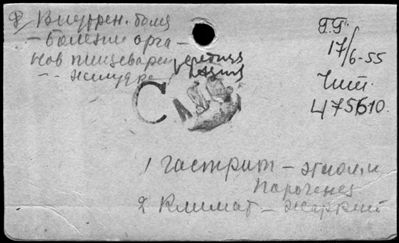 Внутрен. боле
- болезни орга -
нов пищеварен
-"- желудка
Г.Г.
17/6-55
Чит.
475610.
С
1 Гастрит - этиол. и
патогенез
2 Климат - жаркий